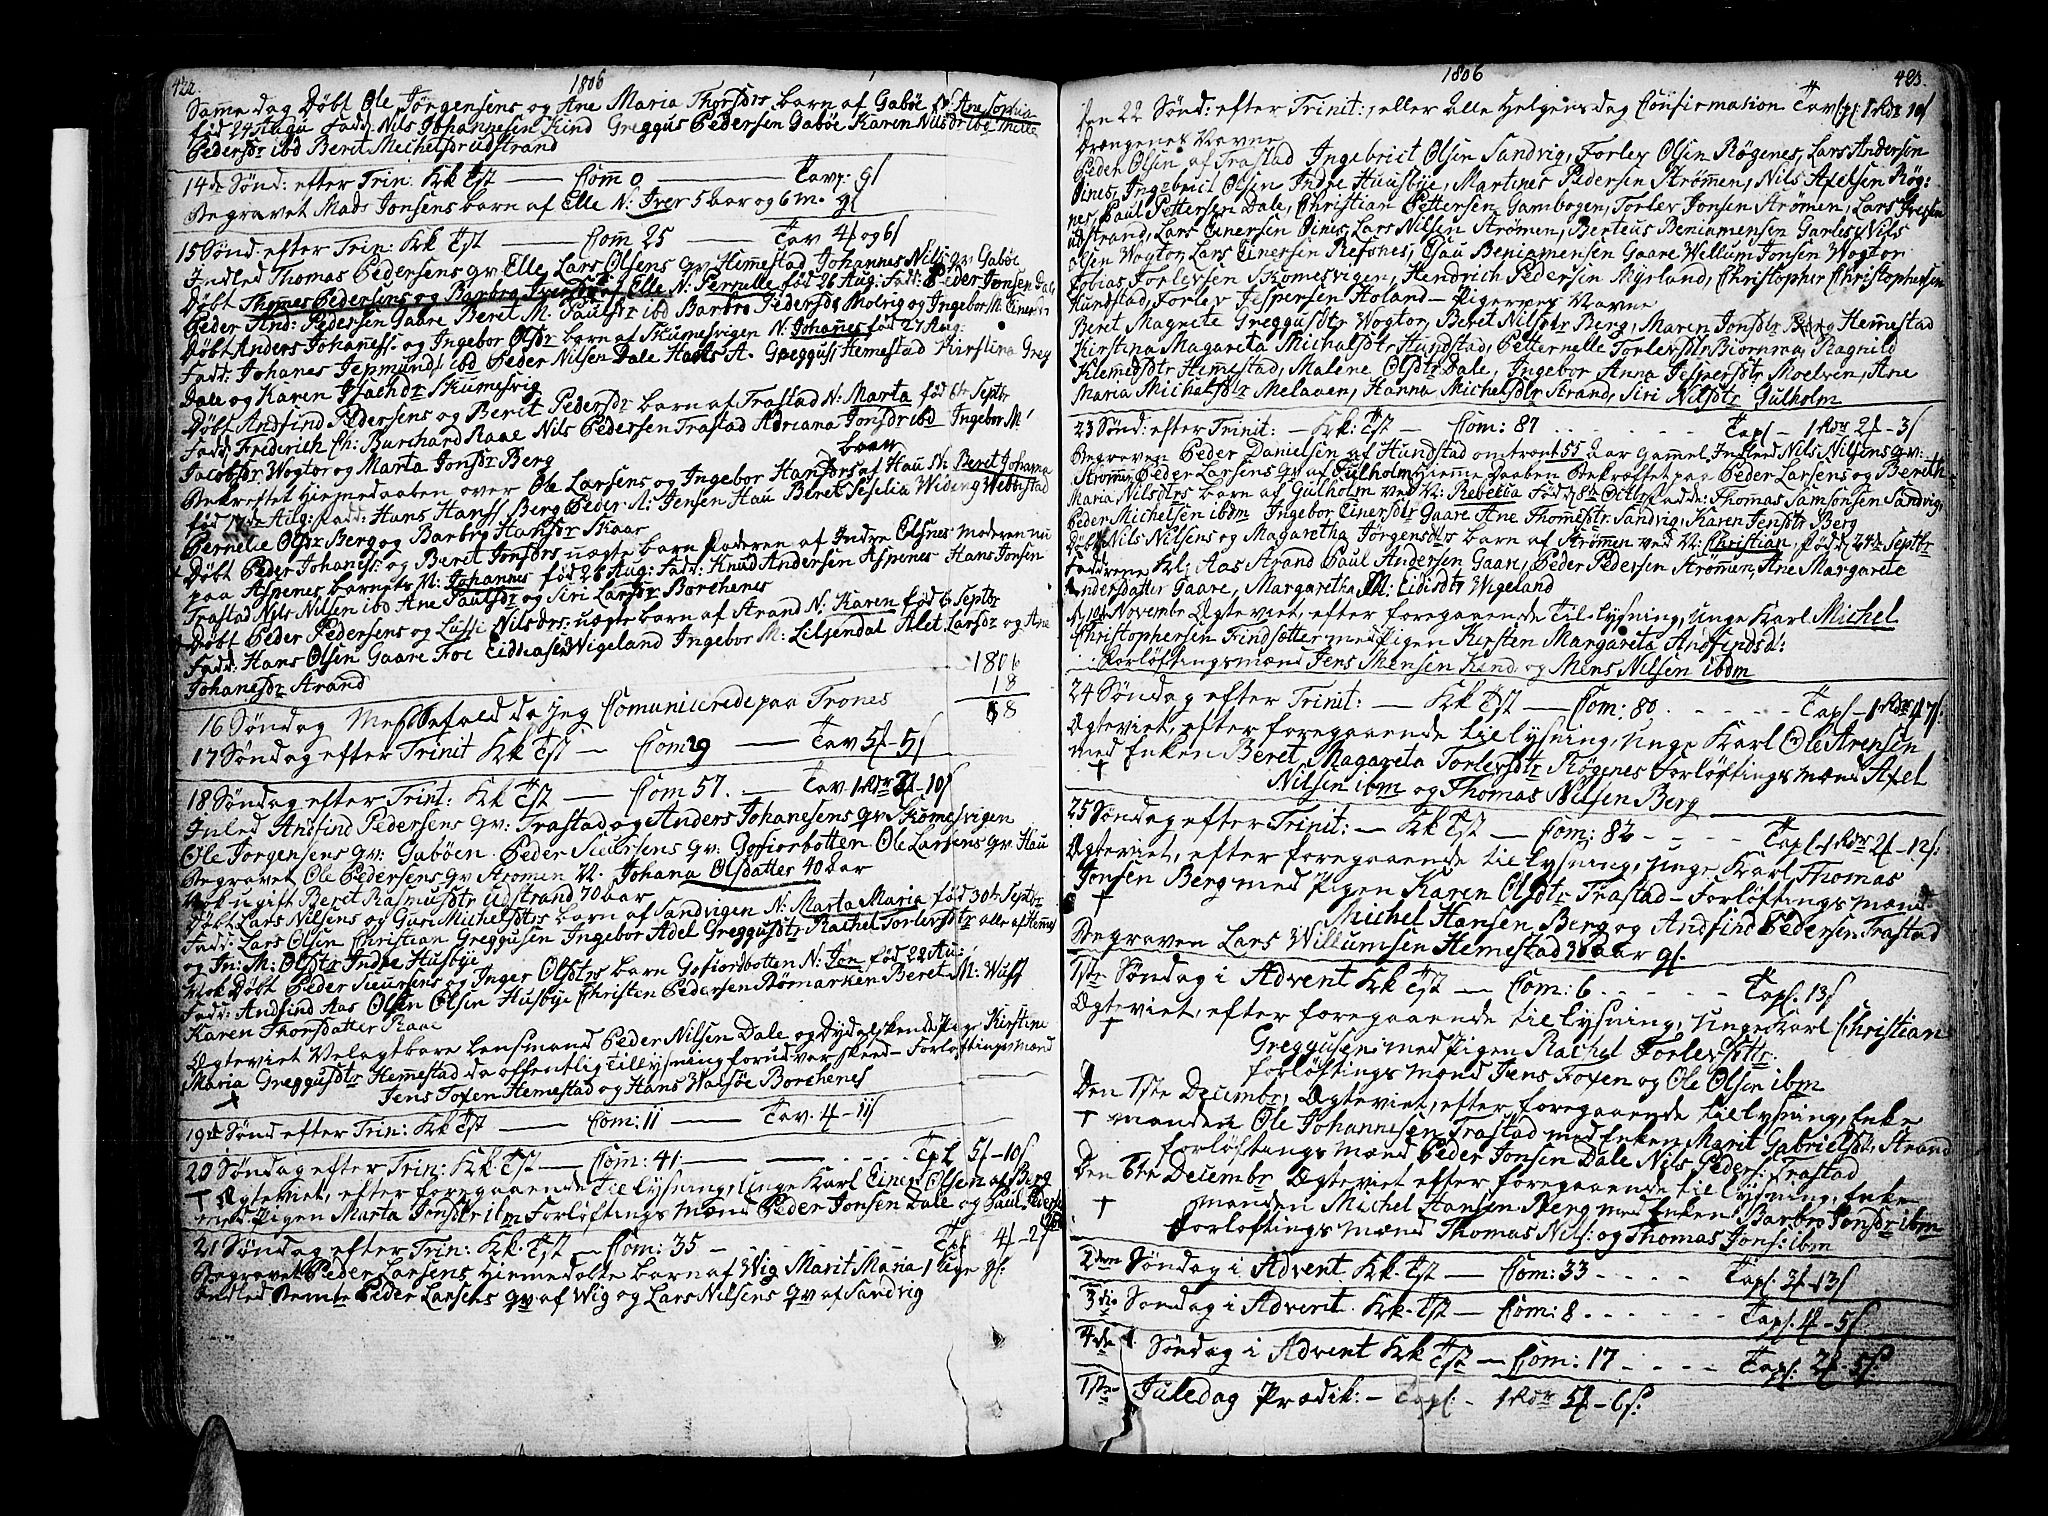 422.
1806
Same dag Døbt Ole Jørgensens og Ane Maria Thorsdrs barn af Gabøe N: Ane Sophia
fød 24 Augu Fadd: Nils Johannesen Kind Greggus Pedersen Gabøe Karen Nilsdr ibd
Pedersdr ibd Berit Michelsdr udstrand
14de Sønd: efter Trin: Kk Tst — Com 0 — Tav: 9ſ
Begravet Mads Jonsens barn af Elle N: Iver 5 aar og 6 m. 9ſ
15 Sønd: efter Trin: Kk Tst — Com 25 — Tav 4 og 6ſ
Indled Thomas Pedersens qv Elle, Lars Olsens qv Hemmestad Johannes Nils: qv Gabøe
Døbt Thomes Pedersens og Barbro Elle N: Pernelle fød 26 Aug: Fadd: Peder Jonsen Dale
Peder And: Pedersen Gaare Beret M: Paulsdr ibd Barbro Pedersdr Molvig og Ingebor M: Einersdr
Døbt Anders Johaness: og Ingebor Olsdr barn af Skumesvigen N: Johanes fød 27 Aug:
Fadd: Johanes Jepmund: ibd Peder Nilsen Dale A. Greggusſ Hemestad Kirstina Greg
Dale og Karen Isachdr Skumesvig
Døbt Andfind Pedersens og Berit Pedersdr barn af Trastad N: Marta fød 6te Septr
Fadd: Frederich Ch: Burchard Raae Nils Pedersen Trastad Adriana Jonsdr ibd Ingebor M:
Jacobsdr Wogtor og Marta Jonsdr Berg
Bekræftet Hiemedaaben over Ole Larsens og Ingebor Hansdrs barn af Hau N: Beret Johanna
fød 17de Aug: Fadd: Hans Hansſ Berg Peder A: Jensen Hau Beret Seselia Widing
Pernelle Olsdr Berg og Barbro Hansdr Skaar
Døbt Peder Johaness: og Beret Jonsdrs uægte barn Faderen af Indre Moderen nu
paa Aspenes barnets N: Johannes fød 26 Aug: Fadd: Knud Andersen Aspenes Hans Jonsen
Trastad Nils Nilsen ibd Ane Paulsdr og Siri Larsdr Borchenes
Døbt Peder Pedersens og Lussi Nilsdrs: uægte barn af Strand N: Karen fød 6 Septbr
Fadd: Hans Olsen Gaare Foe Wigeland Ingebor M: Liljendal Alet Larsdr og Ane
Johanesdr Strand
1806
18
88
16 Søndag Messefald da jeg Comunicerede paa Trones
17 Søndag efter Trinit Kk Tst — Com 29 — Tav 5 - 5ſ
18 Søndag efter Trint: Kk Tst — Com 57. — Tav 1 Rdr 2 - 10ſ
Inled Andfind Pedersens qv: Trastad og Anders Johanesens qv Skømesvigen
Ole Jorgensens qv: Gabøen Peder Siuersens qv: Gofiorbotten Ole Larsens qv Hau
Begravet Ole Pedersens qv Strømen N: Johana Olsdatter 40 aar
Nok ugift Beret Rasmusdtr udstrand 70 aar
Døbt Lars Nilsens og Guri Michelsdtrs barn af Sandvigen N: Marta Maria fød 30te Septbr
Fadd: Lars Olsen Christian Greggusen Ingebor Adel Greggusdtr Rachel Torlevsdtr alle af Hemes
og In: M: Olsdtr Indre Husbye
Nok Døbt Peder Siuersens og Inger Olsdtrs barn Gofiordbotten N: Jon fød 22 Au:
Fadd: Andfind Aas Olsen Olsen Husbye Christen Pedersen Rømarken Beret M: Wulff
Karen Thorsdatter Raae
Ægteviet Velagtbare Lensmand Peder Nilsen Dale og Dydelskende Pige Kirstine
Maria Greggusdtr Hemmestad da offentlig tillysning forud var skeed — Forløftingsmænd
Jens Foxen Hemestad og Hans Waisøe Borchenes
19de Sønd efter Trin: Kk Tst — Com: 11 — Tav: 4 - 11ſ
20 Søndag efter Trin: Kk Tst — Com: 41 — Tpl 5 - 10ſ
† Ægteviet, efter foregaaende tillysning, Unge Karl Einer Olsen af Berg
med Pigen Marta Jonsdtr ibm Forløftings Mænd Peder Jonsen Dale og Paul Peders
21 Søndag efter Trin: Kk. Tst — Com: 35 — Tpl 4 - 2ſ
Begravet Peder Larsens Hiemedøbte barn af Wig Marit Maria 1 Uge 9ſ:
Indled Peder Larsens qv af Wig og Lars Nilsens qv af Sandvig
1806
423.
Den 22 Sønd: efter Trinit:, eller Alle Helgensdag Confirmasion Tavl 1 Rdr 10ſ
Drængenes Navne
Peder Olsen af Trastad Ingebrict Olsen Sandvig, Torlev Olsen Røgenes, Lars Andersen
Oines, Ingebrict Olsen Indre Huusbye, Martines Pedersen Strømen, Nils Axelsen Røg:
nes, Paul Pettersen Dale, Christian Pettersen Gambogen, Torlev Jonsen Strømen, Lars Iversen
udstrand, Lars Einersen Oines, Lars Nilsen Strømen, Berteus Beniamensen Garles Nils
Olsen Wogtor, Lars Einersen Refsnes, Esau Beniamensen Gaare Wellum Jonsen Wogtor
Tobias Torlevsen Skomesvigen, Hendrich Pedersen Myrland, Christopher Christophersen
Hundstad, Torlev Jespersen Holand — Pigernes Navne
Beret Magnete Greggusdtr Wogtor, Beret Nilsdtr Berg, Maren Jonsdtr Hemestad
Kirstina Magareta Michalsdtr Hundstad, Petternelle Torlevsdtr Biornraa, Ragnild
Klemedsdtr Hemestad, Malene Olsdtr Dale, Ingebor Anna Jespersdtr Moelven, Ane
Maria Michelsdtr Melaaven, Hanna Michelsdtr Strand, Siri Nilsdtr Gulholm
23 Sønd: efter Trinit: — Kk: Tst — Com: 87 — Tapl — 1 Rdr 2 - 3ſ
Begraven Peder Danielsen af Hundstad omtrent 55 aar gammel, Indled Nils Nilsens qv:
Strømen Peder Larsens qv af Gulholm, Hieme Daaben Bekræftet paa Peder Larsens og Berith
Maria Nilsdtrs barn af Gulholm ved N: Rebecca Fød 8de Octbr Fadde: Thomas Samsonsen Sandvig,
Peder Michelsen ibdm Ingebor Einersdtr Gaare Ane Thomesdtr Sandvig, Karen Jensdtr Berg
Døbt Nils Nilsens og Magaretha Jørgensdtrs barn af Strømen ved N: Christian, Fød 24de Septbr
Faddrene Kl: Aas Strand Paul Andersen Gaare, Peder Pedersen Strømen, Ane Margarete
Andersdatter Gaare, Margaretha M: Wigeland
d 10 November Ægteviet, efter foregaaende Tillysning, Unge Karl Michel
Christophersen Findsætter med Pigen Kirsten Margareta Andfindsd:
Forløftingsmænd Jens Mensen Kind og Mens Nilsen ibdm
24 Søndag efter Trinit: — Kk Tst — Com: 80 — Tapl — 1 Rdr 4 7ſ:
Ægteviet, efter foregaaende tillysning, Unge Karl Ole Arensen
med Enken Beret Magareta Torlevsdtr Røgenes Forløftings mænd Axel
†
Nilsen ibm og Thomas Nilsen Berg
25 Søndag efter Trinit: — Kk Tst — Com: 82 — Tapl — 1 Rdr 2 - 12ſ:
Ægteviet, efter foregaaende tillysning, Unge Karl Thomas
Jonsen Berg med Pigen Karen Olsdtr Trastad — Forløftings mænd
†
Michel Hansen Berg og Andfind Pedersen Trastad
Begraven Lars Willumsen Hemestad aar 9ſ.
1ste Søndag i Advent Kk Tst — Com: 6 — Tapl. 13ſ
Ægteviet, efter foregaaende tillysning, Unge Karl Christian
†
Greggusen med Pigen Rachel Torlevsdtr:
forløftings mænd Jens Foxen og Ole Olsen ibm
Den 1ste Decembr, Ægteviet, efter foregaaende tillysning, Enke
† manden Ole Johannesen Trastad med Enken Marit Gabrielsdt: Strand
forløftings mænd Peder Jonsen Dale Nils Peders: Trastad
Den 6te Decembr Ægteviet efter foregaaende tillysning, Enke
† manden Michel Hansen Berg med Enken Barbro Jonsdr ibm
Forløftings mænd Thomas Nils: og Thomas Jons: ibm
2den Søndag i Advent. Kk. Tst — Com: 33 — Tapl. 3 - 13ſ
3die Søndag i Advent. Kk. Tst — Com: 8 — Tapl. 4 - 5ſ
4de Søndag i Advent Kk Tst — Com: 17 — Tapl. 2 - 5ſ:
1ste Juledag Prædik: — Tapl. — 1 Rdr 5 - 6ſ: